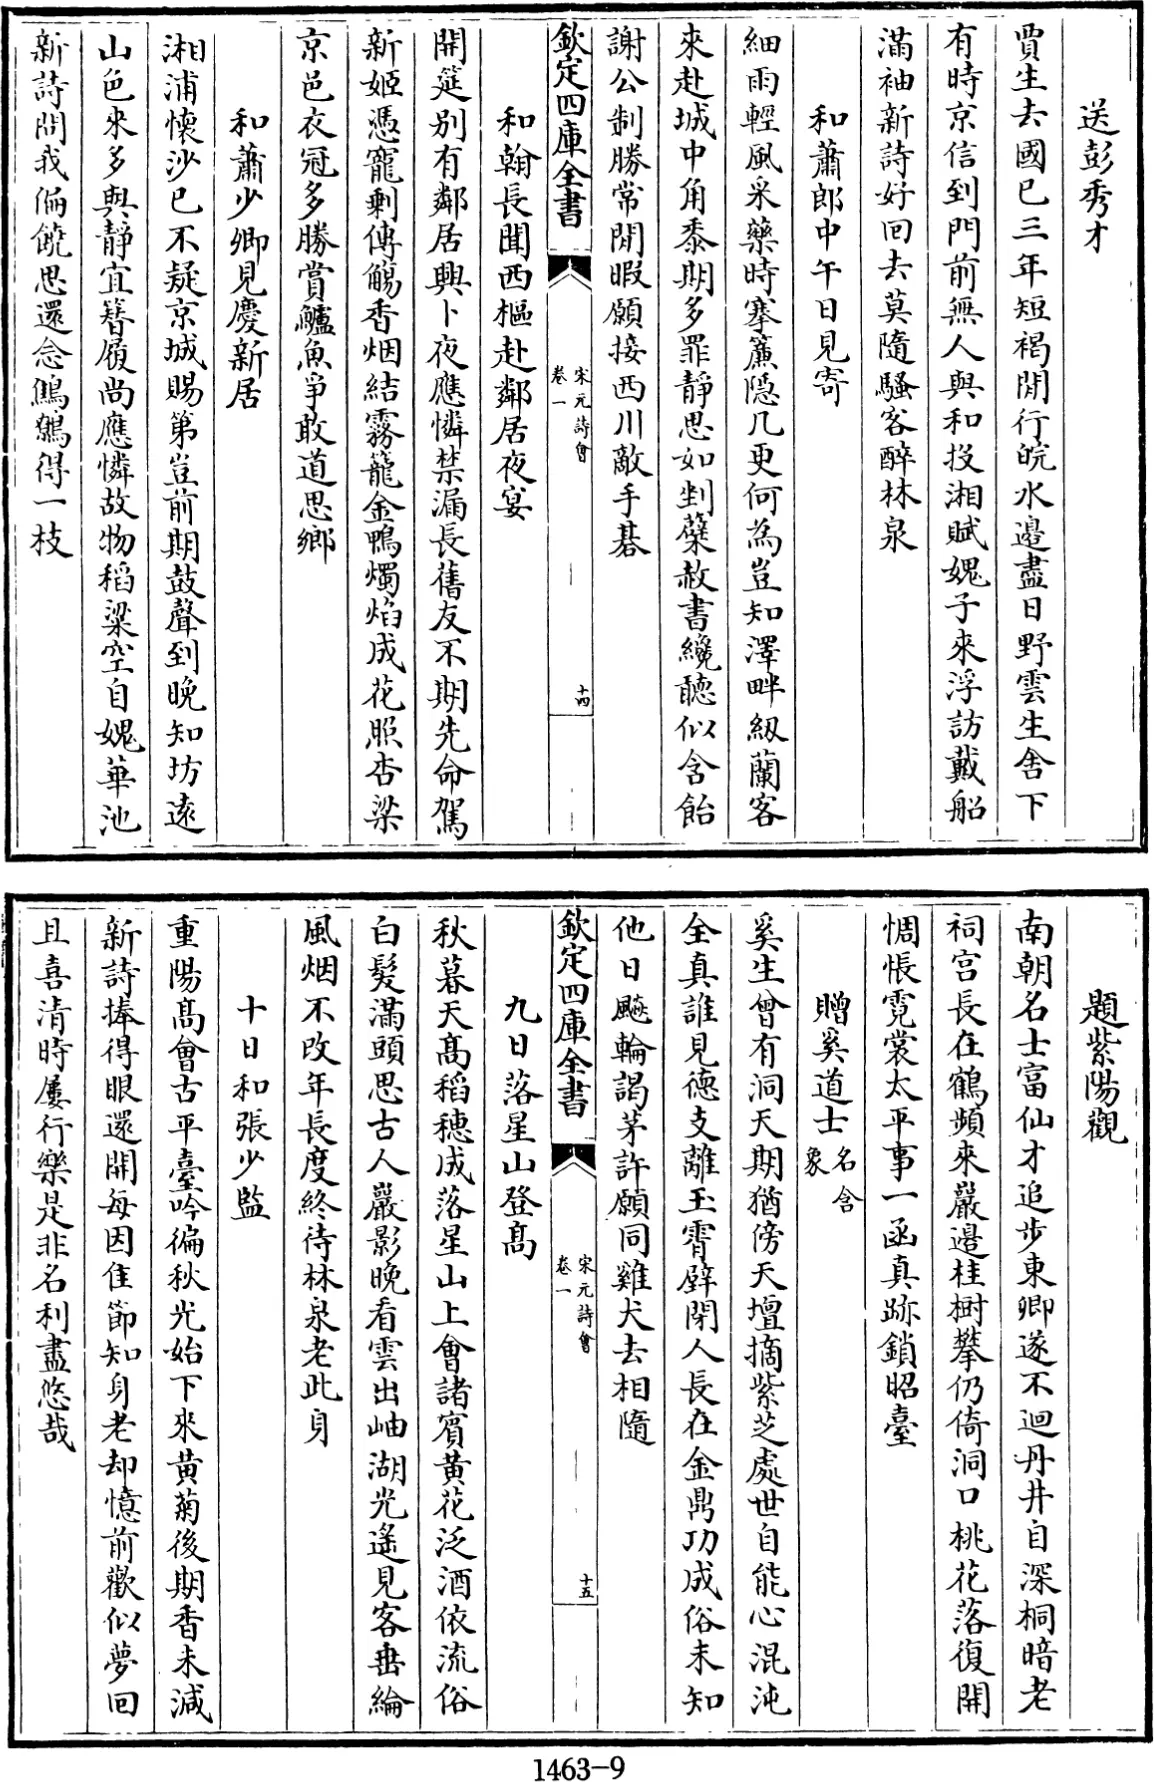 送彭秀才
賈生去國已三年短褐閒行皖水邊盡日野雲生舍下
有時京信到門前無人與和投湘賦媿子來浮訪戴船
滿袖新詩好回去莫隨騷客醉林泉
和蕭郎中午日見寄
細雨輕風采藥時搴簾隱几更何為豈知澤畔紉蘭客
來赴城中角黍期多罪靜思如剉蘖赦書纔聽似含飴
謝公制勝常閒暇願接西川敵手碁
欽定四庫全書
宋元詩會
卷一
十四
和翰長聞西樞赴鄰居夜宴
開筵別有鄰居興卜夜應憐禁漏長舊友不期先命駕
新姬憑寵剩傳觴香烟結霧籠金鴨燭焰成花照杏梁
京邑衣冠多勝賞鱸魚爭敢道思鄉
和蕭少卿見慶新居
湘浦懷沙已不疑京城賜第豈前期鼓聲到晚知坊遠
山色來多與靜宜簪履尚應憐故物稻粱空自媿華池
新詩問我偏饒思還念鷦鷯得一枝
題紫陽觀
南朝名士富仙才追步東卿遂不迴丹井自深桐暗老
祠宮長在鶴頻來巖邊桂樹攀仍倚洞口桃花落復開
惆悵霓裳太平事一函真跡鎖昭臺
贈奚道士名含象
奚生曾有洞天期猶傍天壇摘紫芝處世自能心混沌
全真誰見德支離玉霄壁閉人長在金鼎功成俗未知
他日飈輪謁茅許願同雞犬去相隨
欽定四庫全書
宋元詩會
卷一
十五
九日落星山登高
秋暮天高稻穗成落星山上會諸賓黃花泛酒依流俗
白髮滿頭思古人巖影晚看雲出岫湖光遙見客垂綸
風烟不改年長度終待林泉老此身
十日和張少監
重陽高會古平臺吟徧秋光始下來黃菊後期香未減
新詩捧得眼還開每因佳節知身老却憶前歡似夢回
且喜清時屢行樂是非名利盡悠哉
1463-9